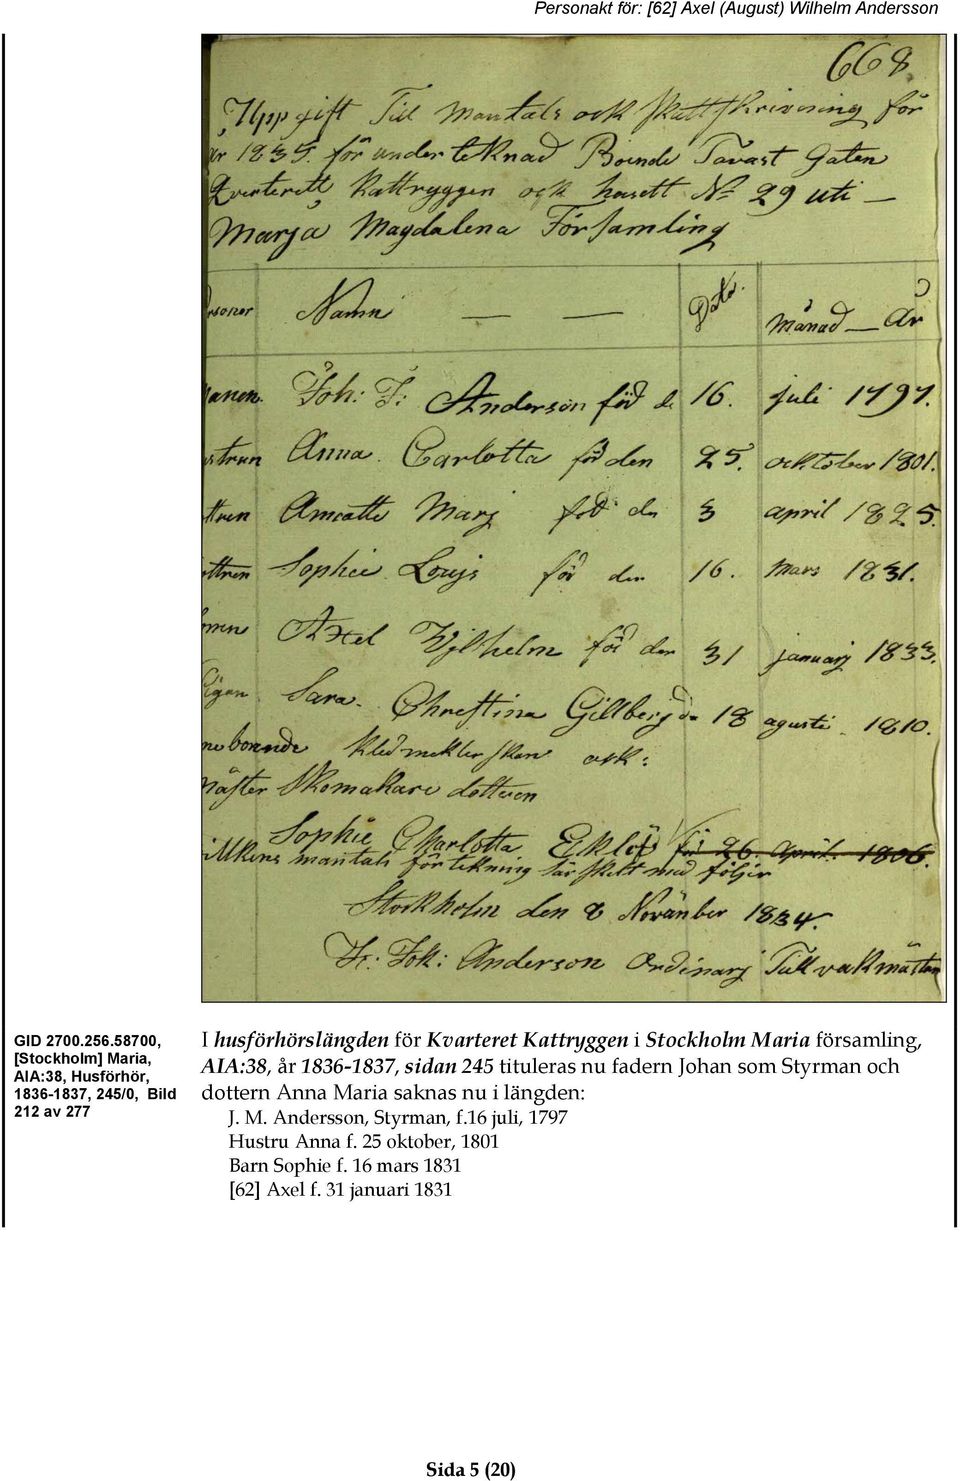 Personakt för: [62] Axel (August) Wilhelm Andersson
668
Uppgift Till Mantals ock skattskrivning för
år 1835. för under teknad Boende Tavast Gaten
Qvarterett Kattryggen ock husett No 29 uti —
Marja Magdalena Församling
rsoner Namn — — Data. Månad — År
anen. Joh: F: Anderson föd d. 16. juli 1797.
ustrun Anna Carlotta föd den 25. oktober 1801.
ttren Marj föd den 3 april 1825.
ottren Sophie Lovjs föd den 16. Mars 1831.
onen Axel Wjlhelm föd den 31 januarj 1833.
Sara Christina Gillberg 18 agusti 1810.
neboende ock:
mäster Skomakare dotteren
Sophie Charlotta Eklöf föd 26. April. 1806.
villkens mantals förtekning särskilt med följer
Stockholm den 8 Novänber 1834.
Joh: Anderson Ordinarj Tullvakmästare
GID 2700.256.58700,
[Stockholm] Maria,
AIA:38, Husförhör,
1836-1837, 245/0, Bild
212 av 277
I husförhörslängden för Kvarteret Kattryggen i Stockholm Maria församling,
AIA:38, år 1836-1837, sidan 245 tituleras nu fadern Johan som Styrman och
dottern Anna Maria saknas nu i längden:
J. M. Andersson, Styrman, f.16 juli, 1797
Hustru Anna f. 25 oktober, 1801
Barn Sophie f. 16 mars 1831
[62] Axel f. 31 januari 1831
Sida 5 (20)